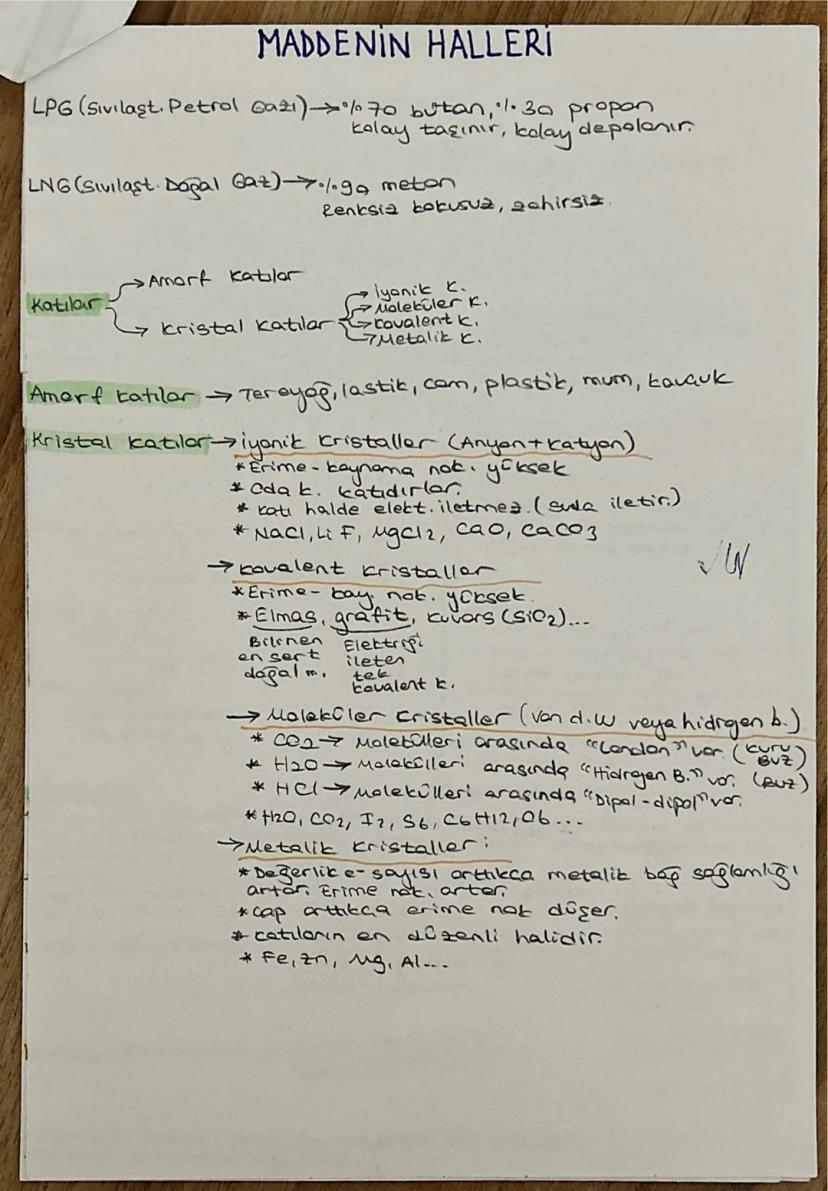 MADDENİN HALLERİ
LPG (Sıvılaşt. Petrol Gazı) → %70 bütan, %30 propan
kolay taşınır, kolay depolanır.
LNG (Sıvılaşt. Doğal Gaz) → %90 metan
Renksiz kokusuz, zehirsiz.
Katılar → Amorf Katılar
→ Kristal Katılar → İyonik k.
→ Moleküler k.
→ Kovalent k.
→ Metalik k.
Amorf Katılar → Tereyağ, lastik, cam, plastik, mum, kauçuk
Kristal Katılar → İyonik Kristaller (Anyon+Katyon)
* Erime - kaynama nok. yüksek
* Oda k. katıdırlar.
* Katı halde elekt. iletmez. (suda iletir.)
* NaCl, LiF, MgCl2, CaO, CaCO3
→ Kovalent Kristaller
* Erime - kay. nok. yüksek.
* Elmas, grafit, kuvars (SiO2)...
Bilinen Elektriği
en sert ileten
doğal m. tek
kovalent k.
→ Moleküler Kristaller (Van d.W veya hidrojen b.)
* CO2 → Molekülleri arasında "London" var. (Kuru Buz)
* H2O → Molekülleri arasında "Hidrojen B." var. (Buz)
* HCl → Molekülleri arasında "Dipol-dipol" var.
* H2O, CO2, I2, S6, C6H12O6...
→ Metalik Kristaller:
* Değerlik e- sayısı arttıkca metalik bağ sağlamlığı
artar. Erime nok. artar.
* Çap arttıkca erime nok düşer.
* Katıların en düzenli halidir.
* Fe, Zn, Mg, Al...